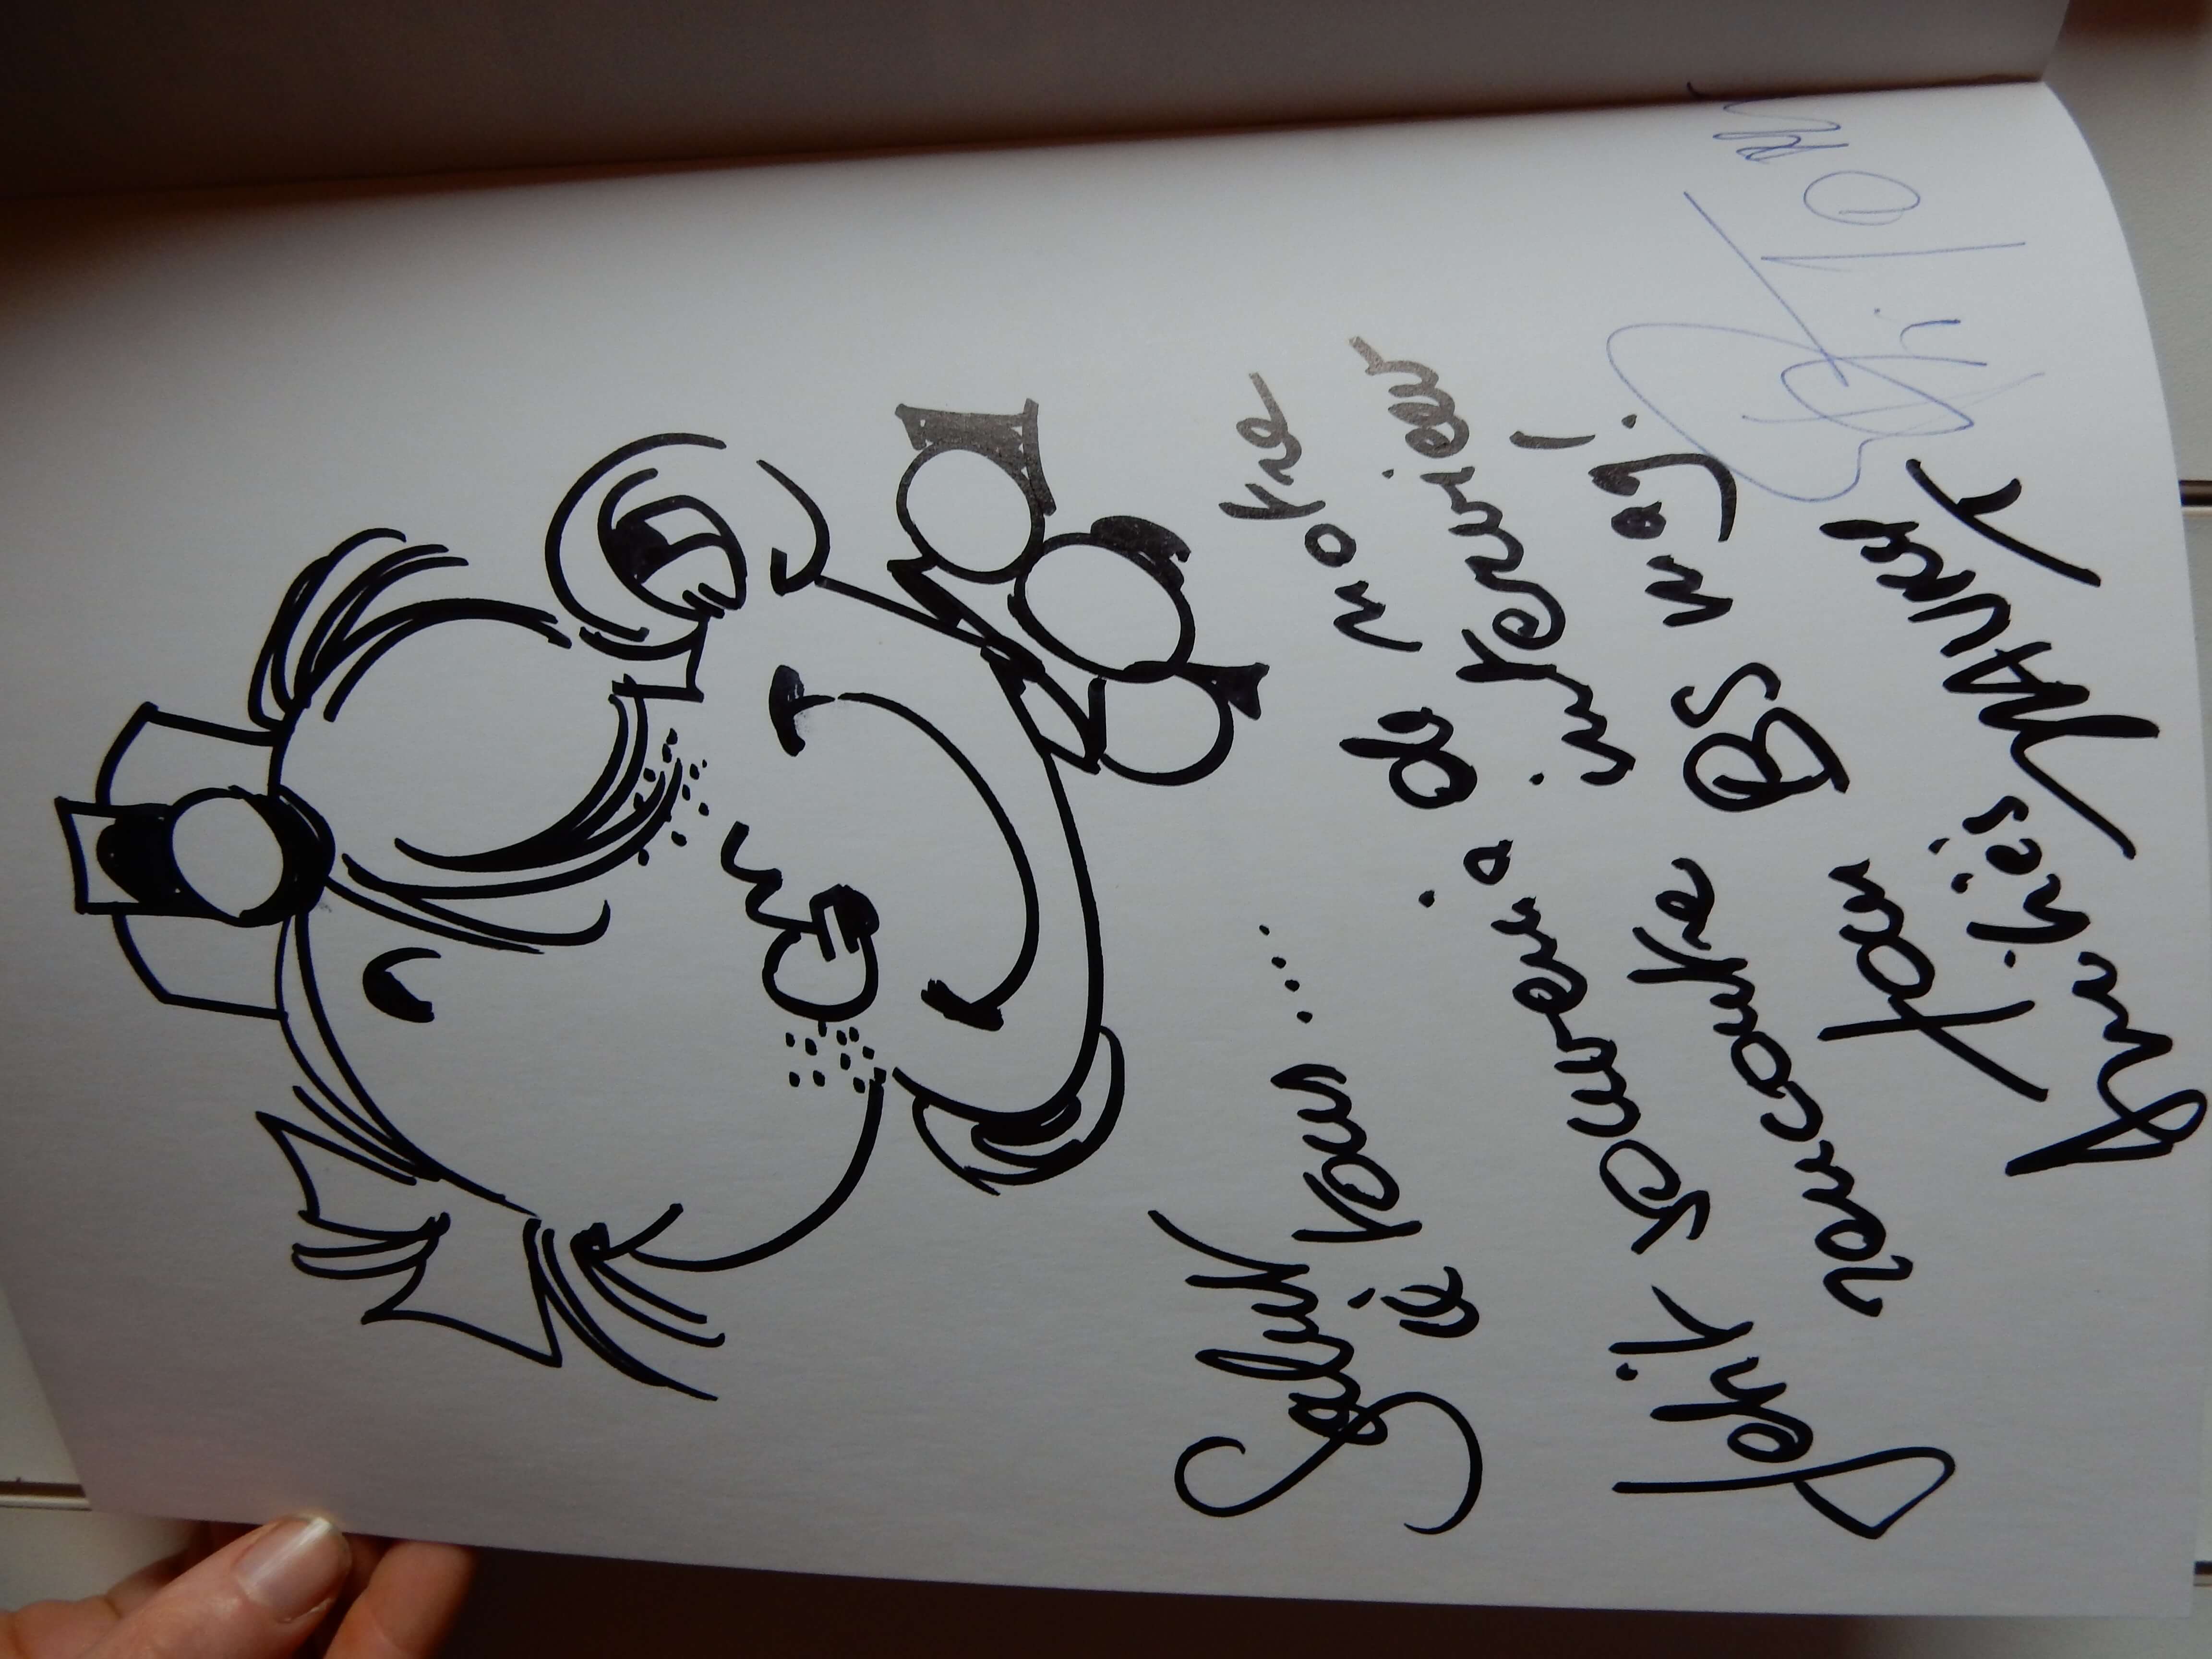 Salut
à tous....
Petit souvenir de notre
rencontre interview
pour BS mag!
Amitiés